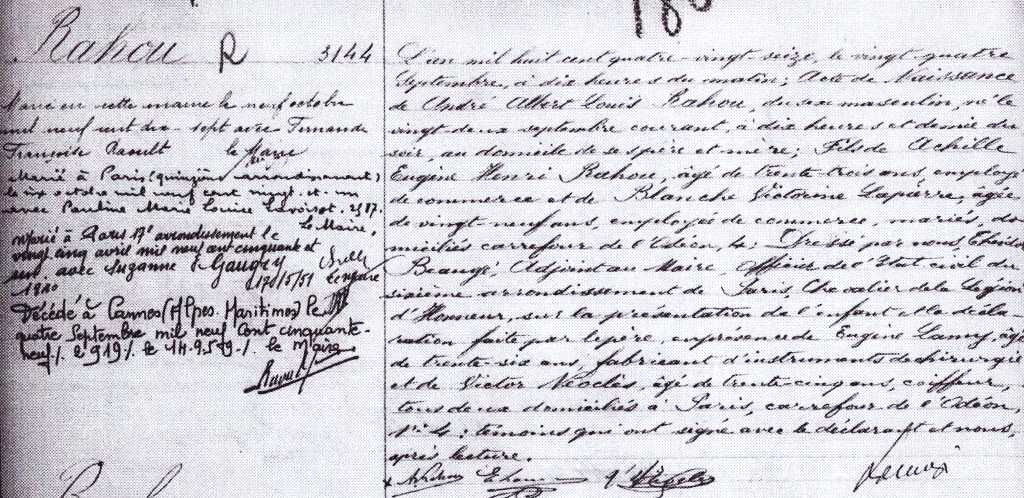 Rahou R 3144
Marié en cette mairie le neuf octobre
mil neuf cent dix-sept avec Fernande
Françoise Raoult le Maire
Marié à Paris (quinzième arrondissement)
le six octobre mil neuf cent vingt-et-un
avec Pauline Marie Louise Lavoisot. 2587.
Le Maire,
Marié à Paris 17e arrondissement le
vingt cinq avril mil neuf cent cinquante et
un avec Suzanne
1810 15/5/51
Décédé à Cannes (Alpes Maritimes) le
quatre Septembre mil neuf Cent cinquante-
neuf./. le 14.9.59./. le Maire
L'an mil huit cent quatre-vingt-seize, le vingt quatre
Septembre, à dix heures du matin; Acte de Naissance
de André Albert Louis Rahou, du sexe masculin, né le
vingt deux septembre courant, à dix heures et demie du
soir, au domicile de ses père et mère; Fils de Achille
Eugène Henri Rahou, âgé de trente trois ans, employé
de commerce et de Blanche Victorine Laparre, âgée
de vingt-neuf ans, employée de commerce, mariés, do
miciliés carrefour de l'Odéon, 4; Dressé par nous,
Beaugé, Adjoint au Maire, Officier de l'Etat civil du
sixième arrondissement de Paris, Chevalier de la Légion
d'Honneur, sur la présentation de l'enfant et la décla-
ration faite par le père, en présence de Eugène Lamy, âgé
de trente-six ans, fabricant d'instruments de chirurgie
et de Victor Néoclès, âgé de trente-cinq ans, coiffeur,
tous deux domiciliés à Paris, carrefour de l'Odéon,
No 4; témoins qui ont signé avec le déclarant et nous,
après lecture.